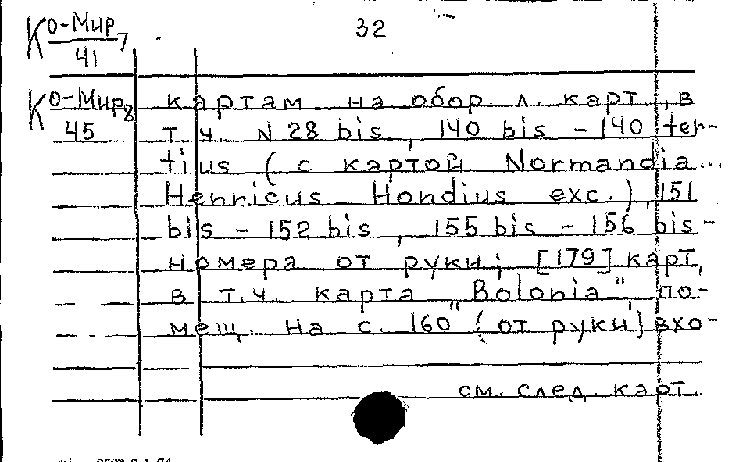 Ко-Мир7
41
32
Ко-Мир8
45
картам на обор л. карт, в
т.ч. N 28 bis, 140 bis - 140 ter-
tius (с картой Normandia...
Henricus Hondius exc.), 151
bis - 152 bis, 155 bis - 156 bis -
номера от руки; [179] карт,
в т.ч. карта „Bolonia“, по-
мещ. на с. 160 (от руки) вхо-
см. след. карт.